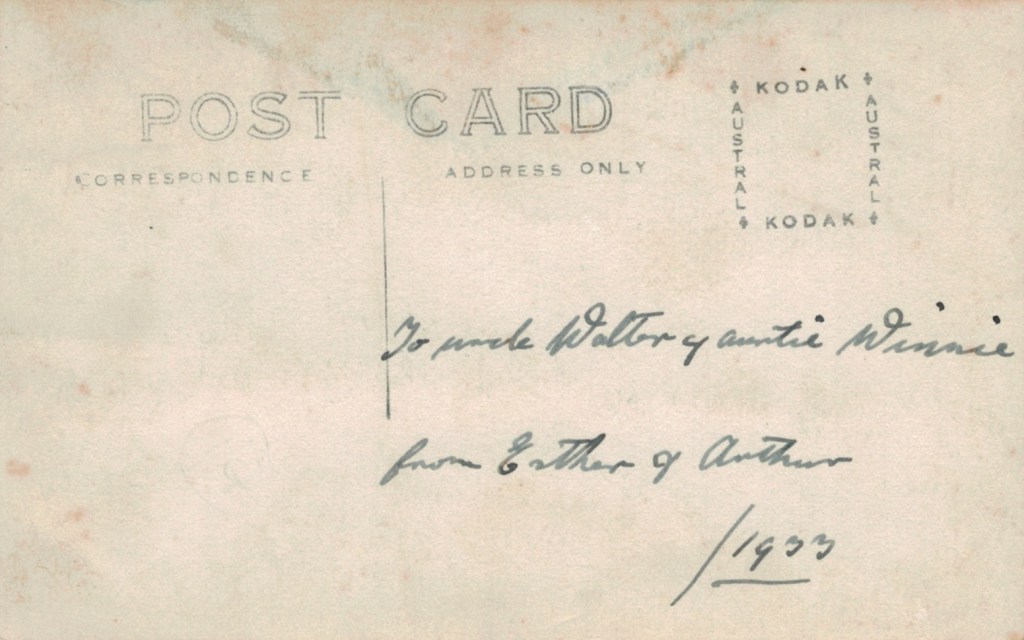 POST CARD
CORRESPONDENCE
ADDRESS ONLY
KODAK
AUSTRAL
AUSTRAL
KODAK
To uncle Walter & auntie Winnie
from Esther & Arthur
/1933